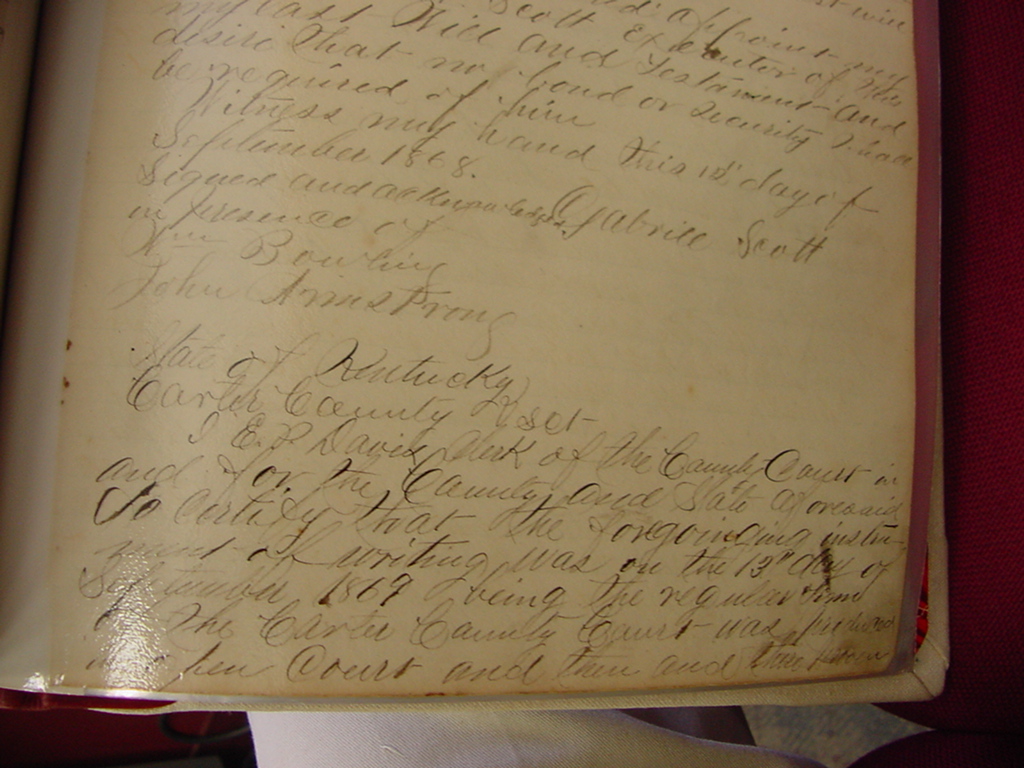 appoint my
Scott Executor of the
my last Will and Testament and
desire that no bond or Security
be required of him
Witness my hand this day of
September 1868.
Signed and Gabriel Scott
in presence of
Wm Bowling
John Armstrong
State of Kentucky
Carter County Sct
I E. P Davis Clerk of the County Court in
and for the County and State aforesaid
do Certify that the foregoinging instru-
ment of writing was on the 13th day of
September 1869 being the regular Term
of the Carter County Court was produced
open Court and then and there